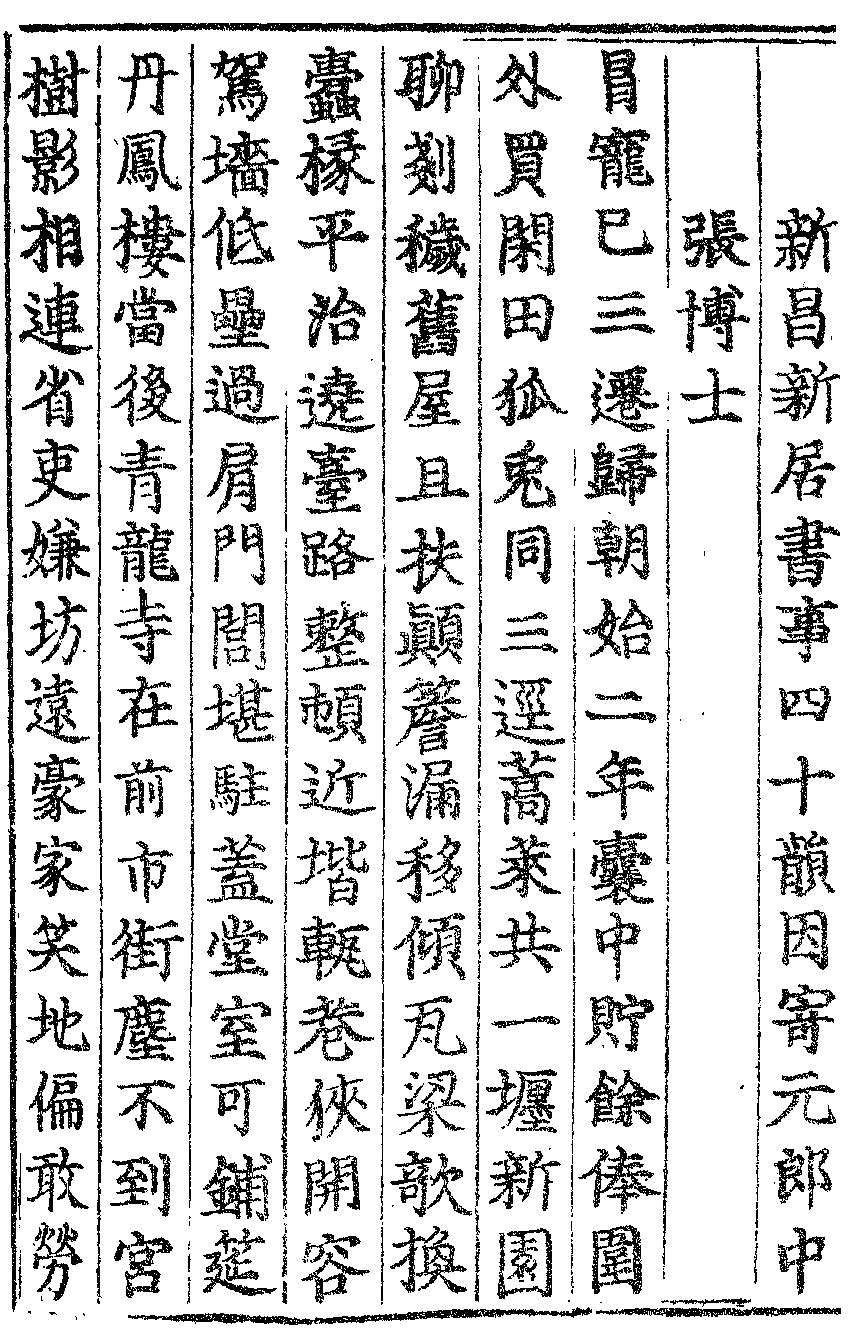 新昌新居書事四十韻因寄元郎中
張博士
冒寵已三遷歸朝始二年囊中貯餘俸圍
外買閑田狐兎同三逕蒿萊共一壥新園
聊剗穢舊屋且扶顛簷漏移傾瓦梁欹換
蠹椽平治遶臺路整頓近堦甎巷狹開容
駕墻低壘過肩門閭堪駐蓋堂室可鋪筵
丹鳳樓當後青龍寺在前市街塵不到宮
樹影相連省吏嫌坊遠豪家笑地偏敢勞